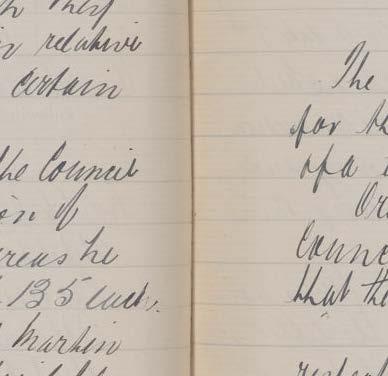 they
relative
certain
the Council
of
he
135 each.
Martin
The
for th
of a
Or
Counc
that the